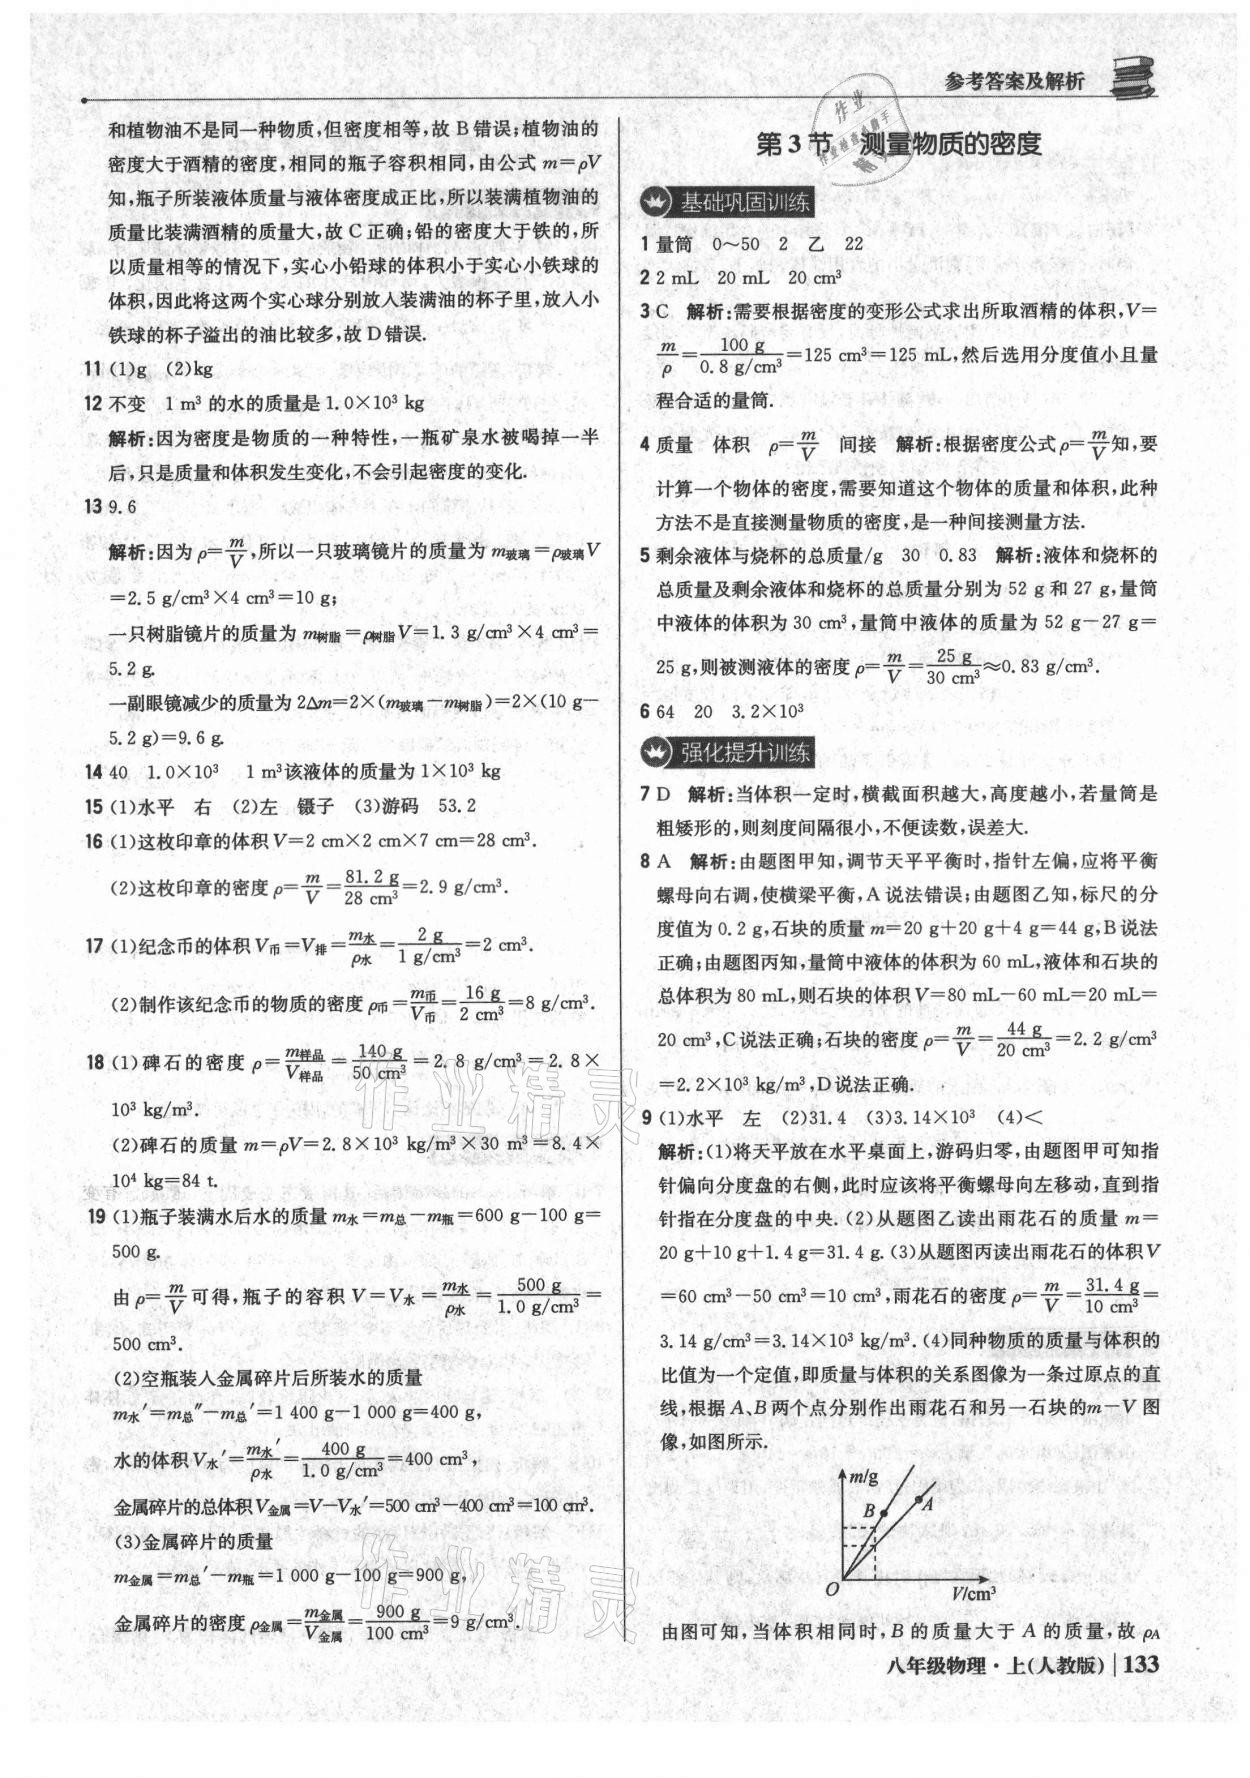 参考答案及解析
和植物油不是同一种物质,但密度相等,故 B 错误;植物油的
密度大于酒精的密度,相同的瓶子容积相同,由公式 m=ρV
知,瓶子所装液体质量与液体密度成正比,所以装满植物油的
质量比装满酒精的质量大,故 C 正确;铅的密度大于铁的,所
以质量相等的情况下,实心小铅球的体积小于实心小铁球的
体积,因此将这两个实心球分别放入装满油的杯子里,放入小
铁球的杯子溢出的油比较多,故 D 错误.
11 (1)g (2)kg
12 不变 1 m³ 的水的质量是 1.0×10³ kg
解析:因为密度是物质的一种特性,一瓶矿泉水被喝掉一半
后,只是质量和体积发生变化,不会引起密度的变化.
13 9.6
解析:因为 ρ=m/V,所以一只玻璃镜片的质量为 m玻璃=ρ玻璃V
=2.5 g/cm³×4 cm³=10 g;
一只树脂镜片的质量为 m树脂=ρ树脂V=1.3 g/cm³×4 cm³=
5.2 g.
一副眼镜减少的质量为 2Δm=2×(m玻璃-m树脂)=2×(10 g-
5.2 g)=9.6 g.
14 40 1.0×10³ 1 m³该液体的质量为 1×10³ kg
15 (1)水平 右 (2)左 镊子 (3)游码 53.2
16 (1)这枚印章的体积 V=2 cm×2 cm×7 cm=28 cm³.
(2)这枚印章的密度 ρ=m/V=81.2 g/28 cm³=2.9 g/cm³.
17 (1)纪念币的体积 V币=V排=m水/ρ水=2 g/1 g/cm³=2 cm³.
(2)制作该纪念币的物质的密度 ρ币=m币/V币=16 g/2 cm³=8 g/cm³.
18 (1)碑石的密度 ρ=m样品/V样品=140 g/50 cm³=2.8 g/cm³=2.8×
10³ kg/m³.
(2)碑石的质量 m=ρV=2.8×10³ kg/m³×30 m³=8.4×
10⁴ kg=84 t.
19 (1)瓶子装满水后水的质量 m水=m总-m瓶=600 g-100 g=
500 g.
由 ρ=m/V可得,瓶子的容积 V=V水=m水/ρ水=500 g/1.0 g/cm³=
500 cm³.
(2)空瓶装入金属碎片后所装水的质量
m水′=m总″-m总′=1 400 g-1 000 g=400 g,
水的体积 V水′=m水′/ρ水=400 g/1.0 g/cm³=400 cm³,
金属碎片的总体积 V金属=V-V水′=500 cm³-400 cm³=100 cm³.
(3)金属碎片的质量
m金属=m总′-m瓶=1 000 g-100 g=900 g,
金属碎片的密度 ρ金属=m金属/V金属=900 g/100 cm³=9 g/cm³.
第 3 节 测量物质的密度
基础巩固训练
1 量筒 0~50 2 乙 22
2 2 mL 20 mL 20 cm³
3 C 解析:需要根据密度的变形公式求出所取酒精的体积,V=
m/ρ=100 g/0.8 g/cm³=125 cm³=125 mL,然后选用分度值小且量
程合适的量筒.
4 质量 体积 ρ=m/V 间接 解析:根据密度公式 ρ=m/V知,要
计算一个物体的密度,需要知道这个物体的质量和体积,此种
方法不是直接测量物质的密度,是一种间接测量方法.
5 剩余液体与烧杯的总质量/g 30 0.83 解析:液体和烧杯的
总质量及剩余液体和烧杯的总质量分别为 52 g 和 27 g,量筒
中液体的体积为 30 cm³,量筒中液体的质量为 52 g-27 g=
25 g,则被测液体的密度 ρ=m/V=25 g/30 cm³≈0.83 g/cm³.
6 64 20 3.2×10³
强化提升训练
7 D 解析:当体积一定时,横截面积越大,高度越小,若量筒是
粗矮形的,则刻度间隔很小,不便读数,误差大.
8 A 解析:由题图甲知,调节天平平衡时,指针左偏,应将平衡
螺母向右调,使横梁平衡,A 说法错误;由题图乙知,标尺的分
度值为 0.2 g,石块的质量 m=20 g+20 g+4 g=44 g,B 说法
正确;由题图丙知,量筒中液体的体积为 60 mL,液体和石块的
总体积为 80 mL,则石块的体积 V=80 mL-60 mL=20 mL=
20 cm³,C 说法正确;石块的密度 ρ=m/V=44 g/20 cm³=2.2 g/cm³
=2.2×10³ kg/m³,D 说法正确.
9 (1)水平 左 (2)31.4 (3)3.14×10³ (4)<
解析:(1)将天平放在水平桌面上,游码归零,由题图甲可知指
针偏向分度盘的右侧,此时应该将平衡螺母向左移动,直到指
针指在分度盘的中央.(2)从题图乙读出雨花石的质量 m=
20 g+10 g+1.4 g=31.4 g.(3)从题图丙读出雨花石的体积 V
=60 cm³-50 cm³=10 cm³,雨花石的密度 ρ=m/V=31.4 g/10 cm³=
3.14 g/cm³=3.14×10³ kg/m³.(4)同种物质的质量与体积的
比值为一个定值,即质量与体积的关系图像为一条过原点的直
线,根据 A、B 两个点分别作出雨花石和另一石块的 m-V 图
像,如图所示.
m/g
B
A
O
V/cm³
由图可知,当体积相同时,B 的质量大于 A 的质量,故 ρA
八年级物理·上(人教版) 133
作业精灵
作业精灵